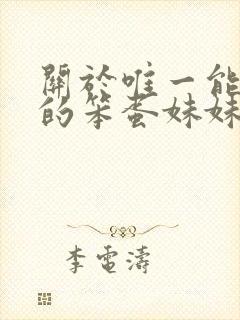 關於唯一能
的笨蛋妹妹
李電濤